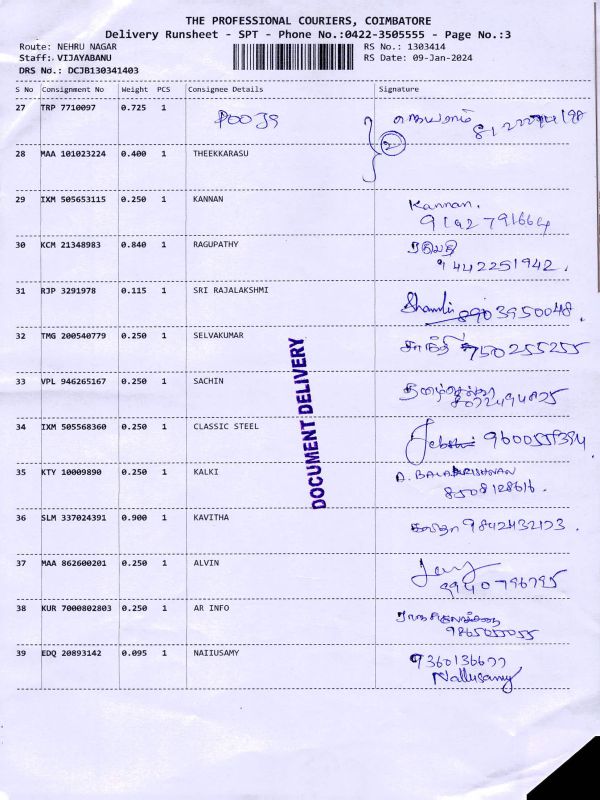 THE PROFESSIONAL COURIERS, COIMBATORE
Delivery Runsheet - SPT - Phone No.:0422-3505555 - Page No.:3
Route: NEHRU NAGAR RS No.: 1303414
Staff: VIJAYABANU RS Date: 09-Jan-2024
DRS No.: DCJB130341403
S No Consignment No Weight PCS Consignee Details Signature
27 TRP 7710097 0.725 1
28 MAA 101023224 0.400 1 THEEKKARASU
2
29 IXM 505653115 0.250 1 KANNAN Kannan.
30 KCM 21348983 0.840 1 RAGUPATHY
9442251942.
31 RJP 3291978 0.115 1 SRI RAJALAKSHMI
8903950048.
32 TMG 200540779 0.250 1 SELVAKUMAR சாந்தி 9750255255
33 VPL 946265167 0.250 1 SACHIN
34 IXM 505568360 0.250 1 CLASSIC STEEL
35 KTY 10009890 0.250 1 KALKI A. BALAKRISHNAN
8508128616.
36 SLM 337024391 0.900 1 KAVITHA கவிதா 9842432123.
37 MAA 862600201 0.250 1 ALVIN
38 KUR 7000802803 0.250 1 AR INFO
39 EDQ 20893142 0.095 1 NAIIUSAMY 9360136677
Nallusamy
DOCUMENT DELIVERY